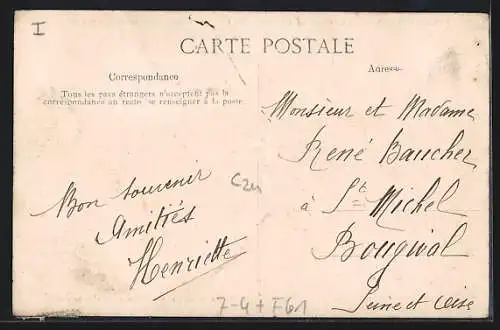 I
CARTE POSTALE
Correspondance
Tous les pays étrangers n'acceptent pas la
correspondance au recto se renseigner à la poste
Adresse
Bon souvenir
Amitiés
Henriette
Monsieur et Madame
René Baucher
à St Michel
Bougival
Seine et Oise
7-4 + F61